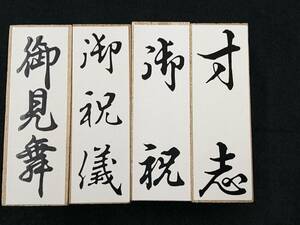 寸志
御祝
御祝儀
御見舞